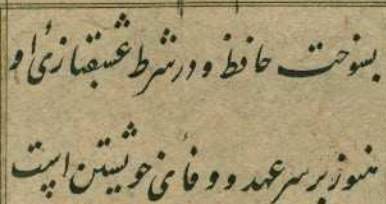 بسوخت حافظ و در شرط عشقبازئ او
هنوز بر سر عهد و وفائی خویشتن است